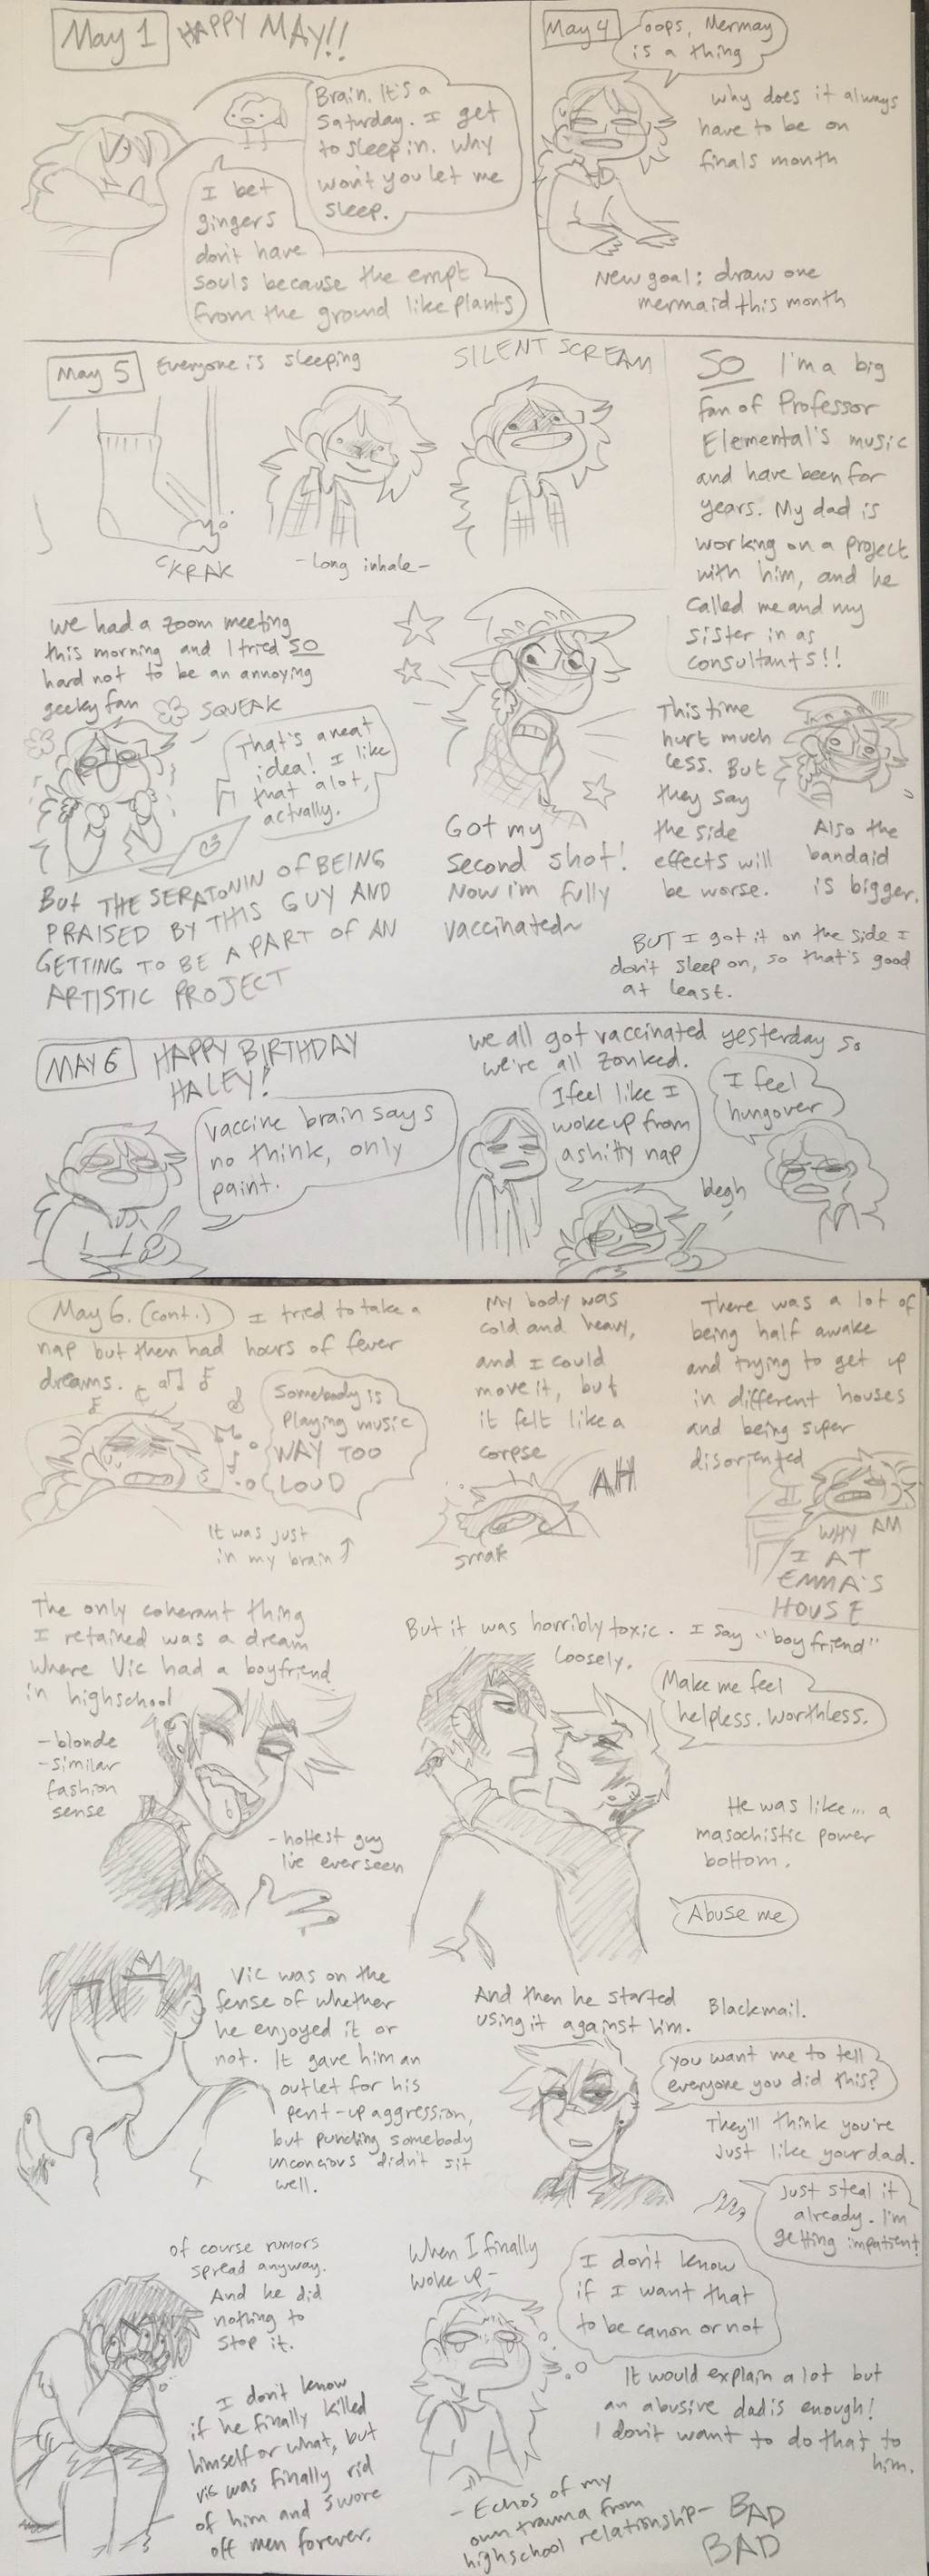 May 1
HAPPY MAY!!
Brain. It's a
Saturday. I get
to sleep in. Why
won't you let me
sleep.
I bet
gingers
don't have
souls because the erupt
from the ground like plants
May 4
oops, Mermay
is a thing
why does it always
have to be on
finals month
New goal: draw one
mermaid this month
May 5
Everyone is sleeping
CKRAK
-long inhale-
SILENT SCREAM
SO I'm a big
fan of Professor
Elemental's music
and have been for
years. My dad is
working on a project
with him, and he
called me and my
sister in as
consultants!!
we had a zoom meeting
this morning and I tried SO
hard not to be an annoying
geeky fan
SQUEAK
That's a neat
idea! I like
that alot,
actually.
But THE SERATONIN OF BEING
PRAISED BY THIS GUY AND
GETTING TO BE A PART OF AN
ARTISTIC PROJECT
Got my
second shot!
Now I'm fully
vaccinated~
This time
hurt much
less. But
they say
the side
effects will
be worse.
Also the
bandaid
is bigger.
BUT I got it on the side I
don't sleep on, so that's good
at least.
MAY 6
HAPPY BIRTHDAY
HALEY!
Vaccine brain says
no think, only
paint.
we all got vaccinated yesterday so
we're all zonked.
I feel like I
woke up from
a shitty nap
I feel
hungover
blegh
May 6. (cont.)
I tried to take a
nap but then had hours of fever
dreams.
Somebody is
playing music
WAY TOO
LOUD
It was just
in my brain
My body was
cold and heavy,
and I could
move it, but
it felt like a
corpse
AH
smak
There was a lot of
being half awake
and trying to get up
in different houses
and being super
disoriented
WHY AM
I AT
EMMA'S
HOUSE
The only coherant thing
I retained was a dream
where Vic had a boyfriend
in highschool
-blonde
-similar
fashion
sense
-hottest guy
I've ever seen
But it was horribly toxic. I say "boyfriend"
loosely.
Make me feel
helpless. Worthless.
He was like... a
masochistic power
bottom.
Abuse me
Vic was on the
fense of whether
he enjoyed it or
not. It gave him an
outlet for his
pent-up aggression,
but punching somebody
unconcious didn't sit
well.
And then he started
using it against him.
Blackmail.
you want me to tell
everyone you did this?
They'll think you're
just like your dad.
Just steal it
already. I'm
getting impatient
of course rumors
spread anyway.
And he did
nothing to
stop it.
I don't know
if he finally killed
himself or what, but
vic was finally rid
of him and swore
off men forever.
When I finally
woke up-
I don't know
if I want that
to be canon or not
It would explain a lot but
an abusive dad is enough!
I don't want to do that to
him.
-Echos of my
own trauma from
highschool relationship-
BAD
BAD